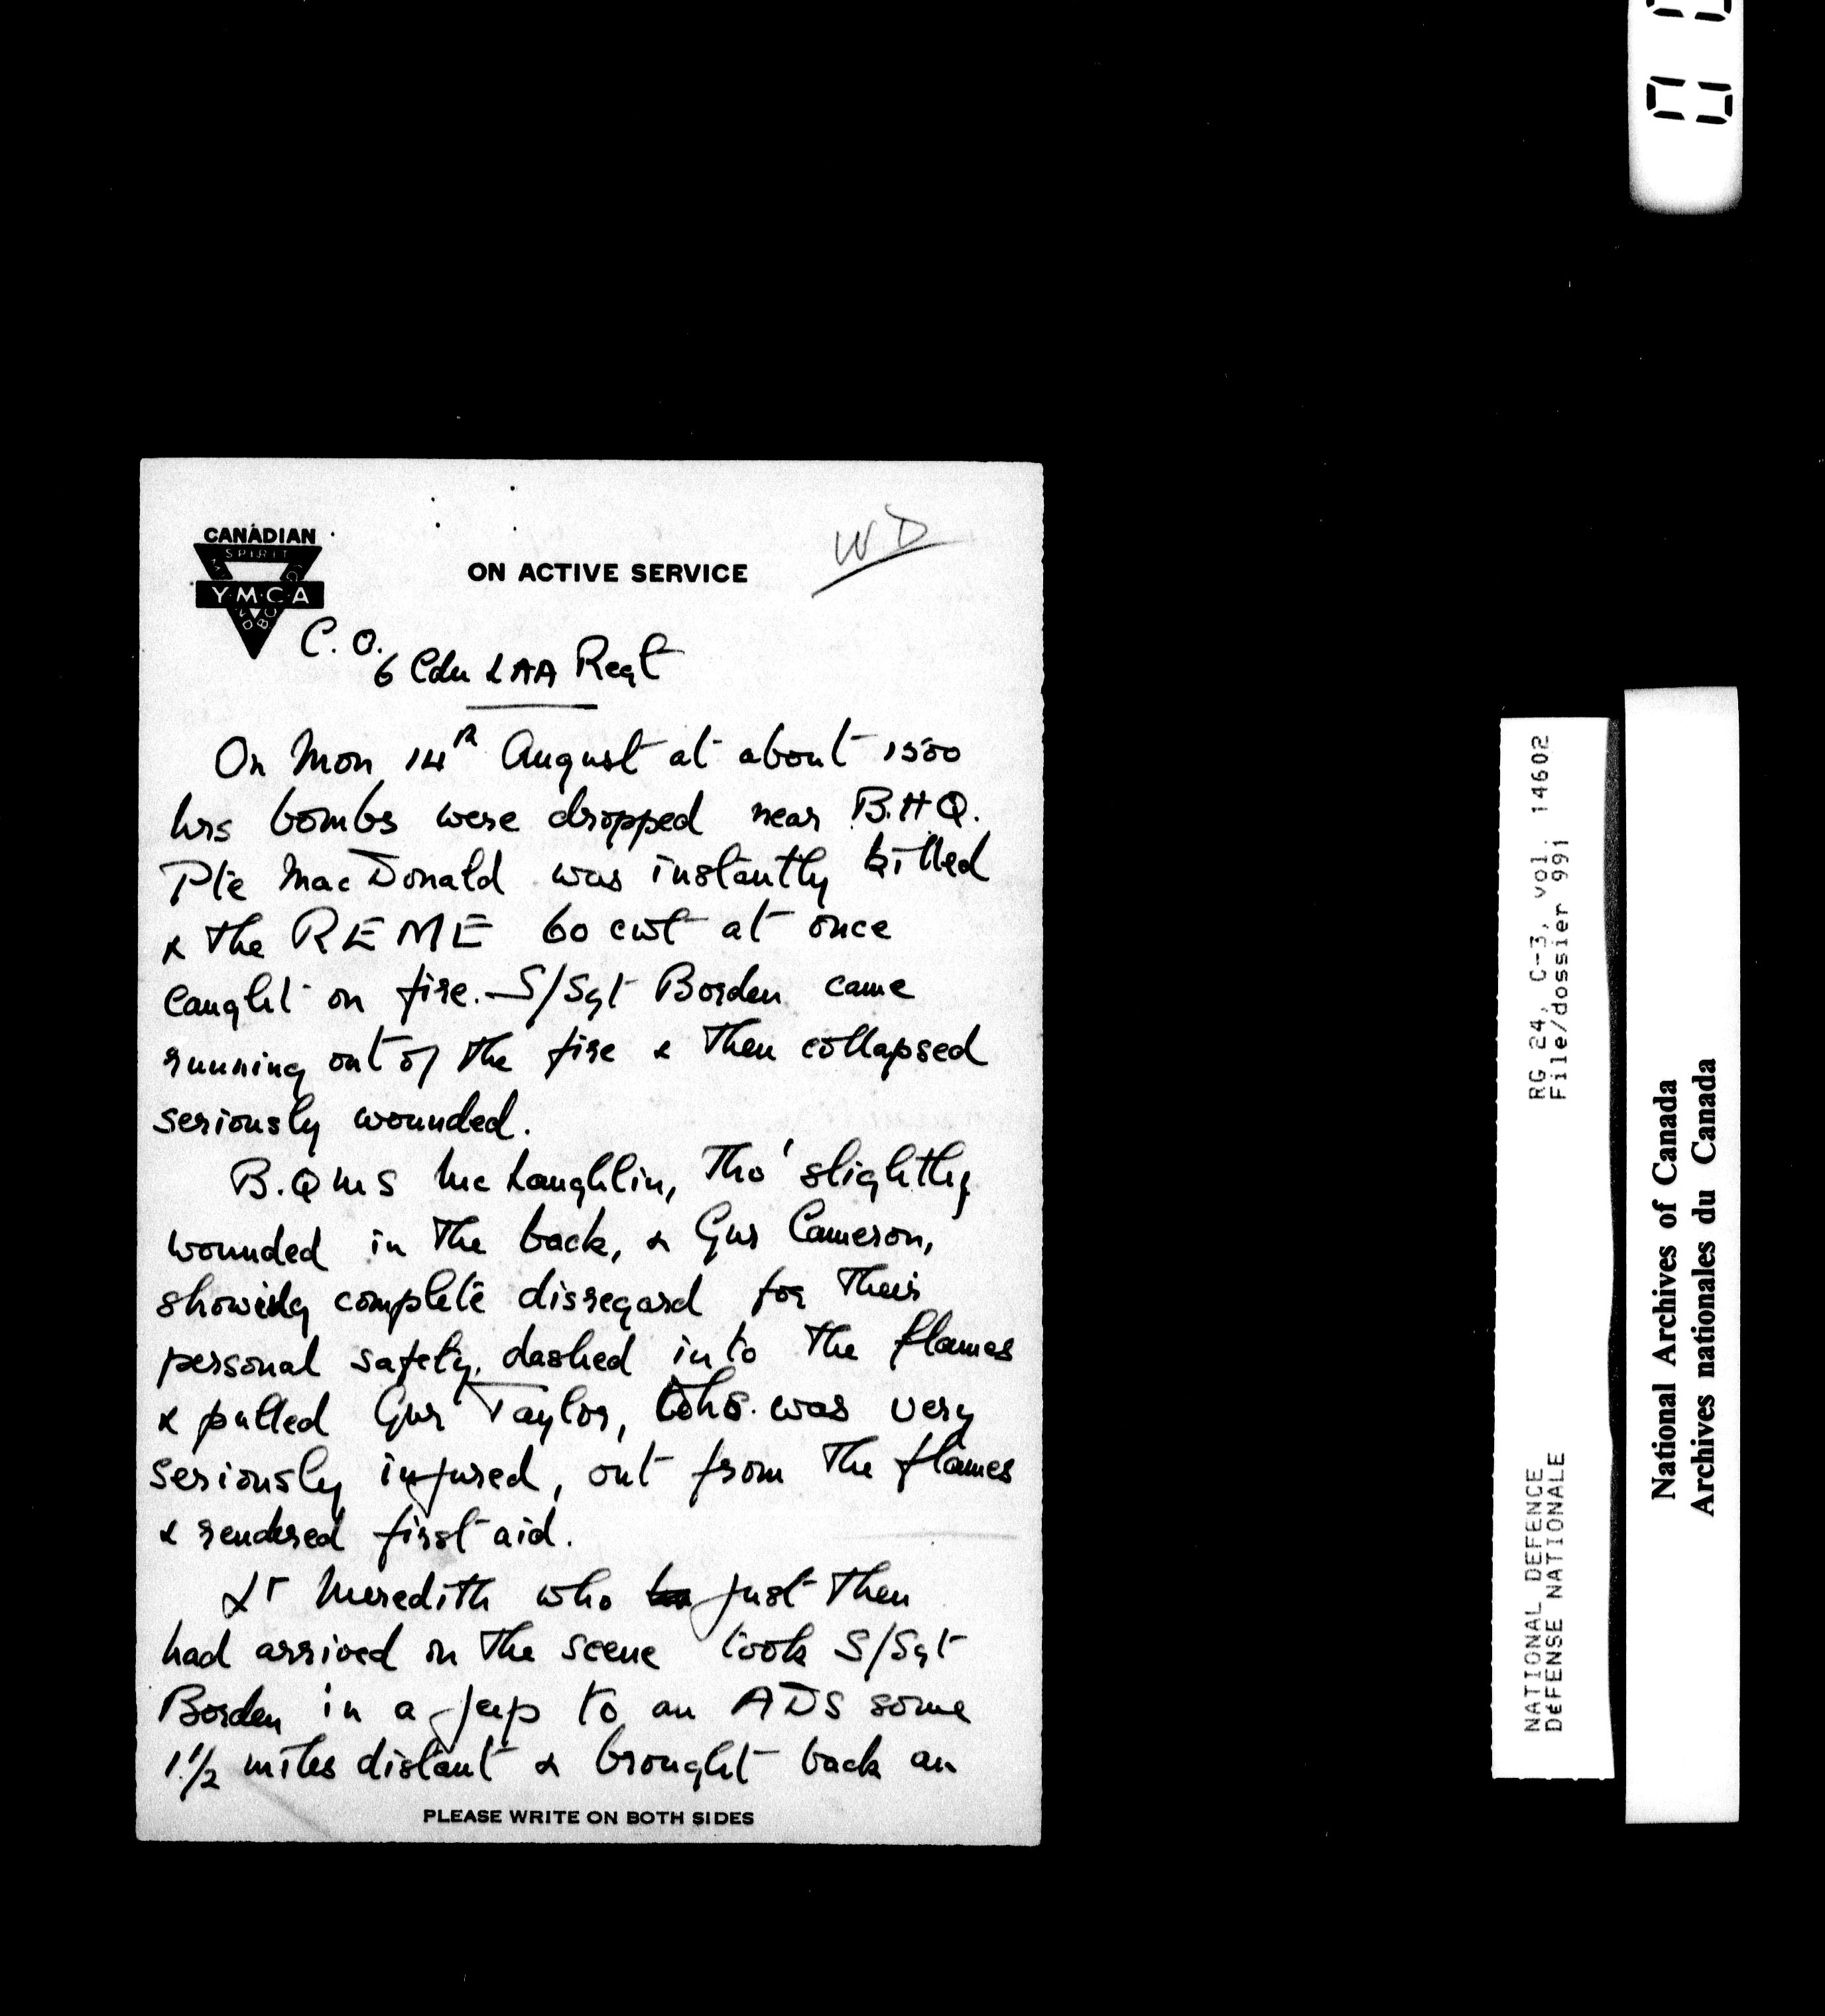 CANADIAN
SPIRIT
Y·M·C·A
ON ACTIVE SERVICE
WD
C. O.
6 Cdn LAA Regt
On Mon 14th August at about 1500
hrs bombs were dropped near B.H.Q.
Pte MacDonald was instantly killed
& the REME 60 cwt at once
caught on fire. S/Sgt Borden came
running out of the fire & then collapsed
seriously wounded.
B.QMS McLaughlin, tho' slightly
wounded in the back, & Gnr Cameron,
showing complete disregard for their
personal safety, dashed into the flames
& pulled Gnr Taylor, who was very
seriously injured, out from the flames
& rendered first aid.
Lt Meredith who just then
had arrived on the scene took S/Sgt
Borden in a jeep to an ADS some
1 1/2 miles distant & brought back an
PLEASE WRITE ON BOTH SIDES
NATIONAL DEFENCE RG 24, C-3, vol. 14602
DéFENSE NATIONALE File/dossier 991
National Archives of Canada
Archives nationales du Canada